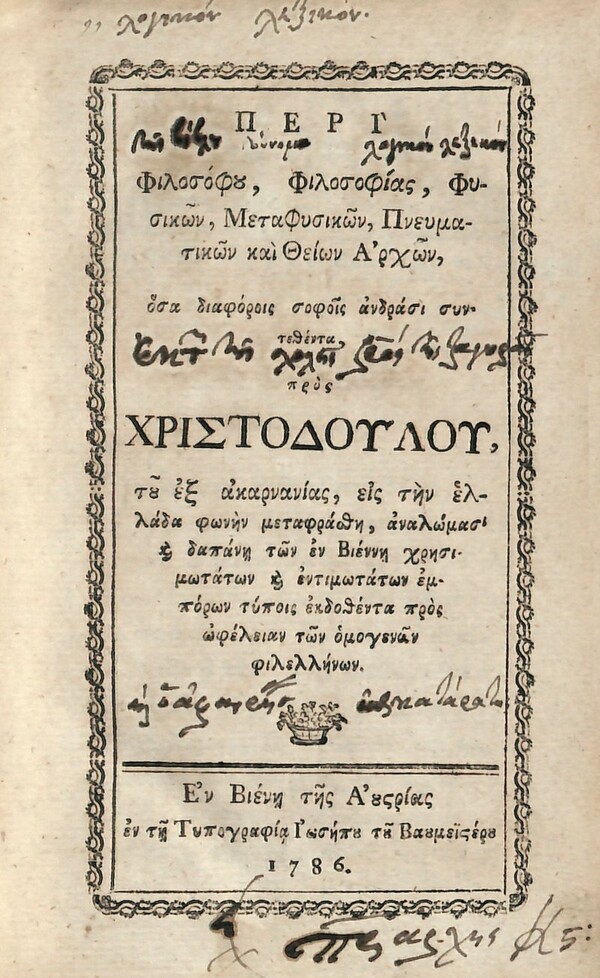 λογικόν λεξικόν.
ΠΕΡΙ
λογικόν λεξικόν
Φιλοσόφȣ, Φιλοσοφίας, Φυ-
σικῶν, Μεταφυσικῶν, Πνευμα-
τικῶν καὶ Θείων Α᾿ρχῶν,
ὅσα διαφόροις σοφοῖς ἀνδράσι συν-
τεθέντα,
πρὸς
ΧΡΙΣΤΟΔΟΥΛΟΥ,
τȣ͂ ἐξ ἀκαρνανίας, εἰς τὴν ἑλ-
λάδα φωνὴν μεταφράσθη, ἀναλώμασι
ϗ δαπάνῃ τῶν ἐν Βιέννῃ χρησι-
μωτάτων ϗ ἐντιμωτάτων ἐμ-
πόρων τύποις ἐκδοθέντα πρὸς
ὠφέλειαν τῶν ὁμογενῶν
φιλελλήνων.
Ε᾿ν Βιένῃ τῆς Α᾿ȣϛρίας
ἐν τῇ Τυπογραφίᾳ Ι᾿ωσήπȣ τȣ͂ Βαȣμεϊϛέρȣ
1786.